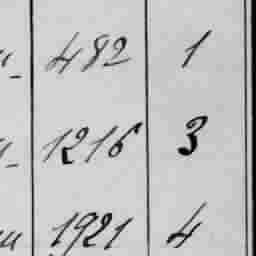 482 1
1216 3
1921 4